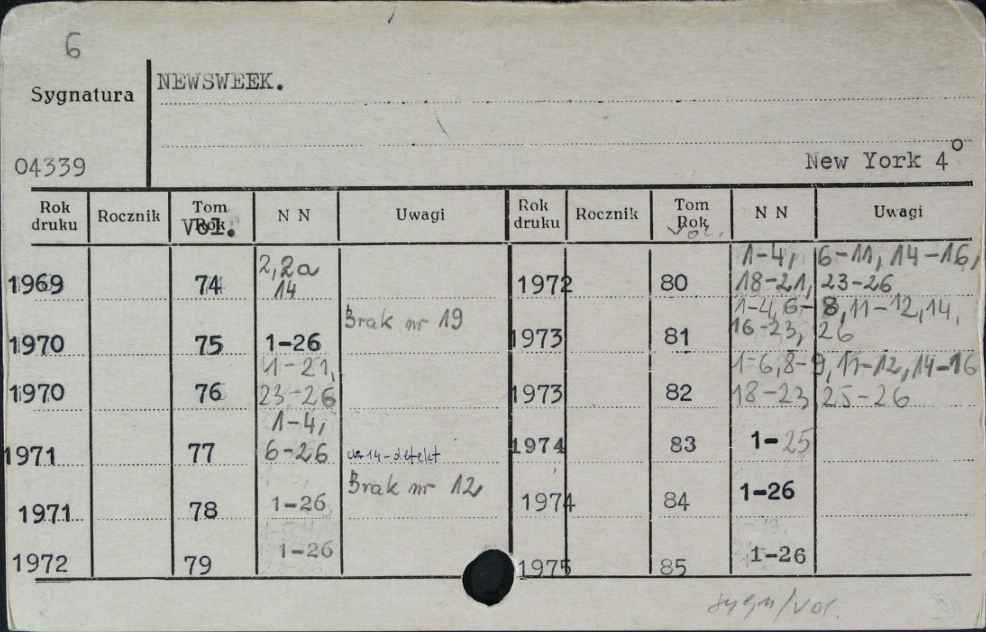 6
Sygnatura NEWSWEEK.
04339 New York 4°
Rok druku Rocznik Tom Rok Vol. N N Uwagi Rok druku Rocznik Tom Rok Vol. N N Uwagi
1969 74 2, 2a 14
1970 75 1-26 Brak nr 19
1970 76 1-21, 23-26
1971 77 1-4, 6-26 nr 14-defekt
1971 78 1-26 Brak nr 12
1972 79 1-26
1972 80 1-4, 6-11, 14-16, 18-21, 23-26
1973 81 1-4, 6-8, 11-12, 14, 16-23, 26
1973 82 1-6, 8-9, 11-12, 14-16 18-23, 25-26
1974 83 1-25
1974 84 1-26
1975 85 1-26
sygn/vol.